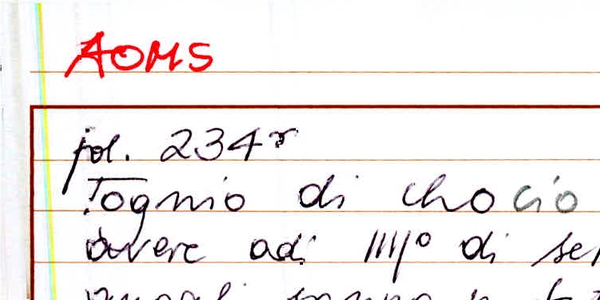 AOMS
fol. 234r
Tognio di chocio
avere adi IIII° di se